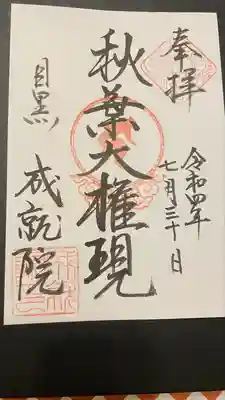 奉拝
令和四年
七月三十日
秋葉大権現
目黒
成就院